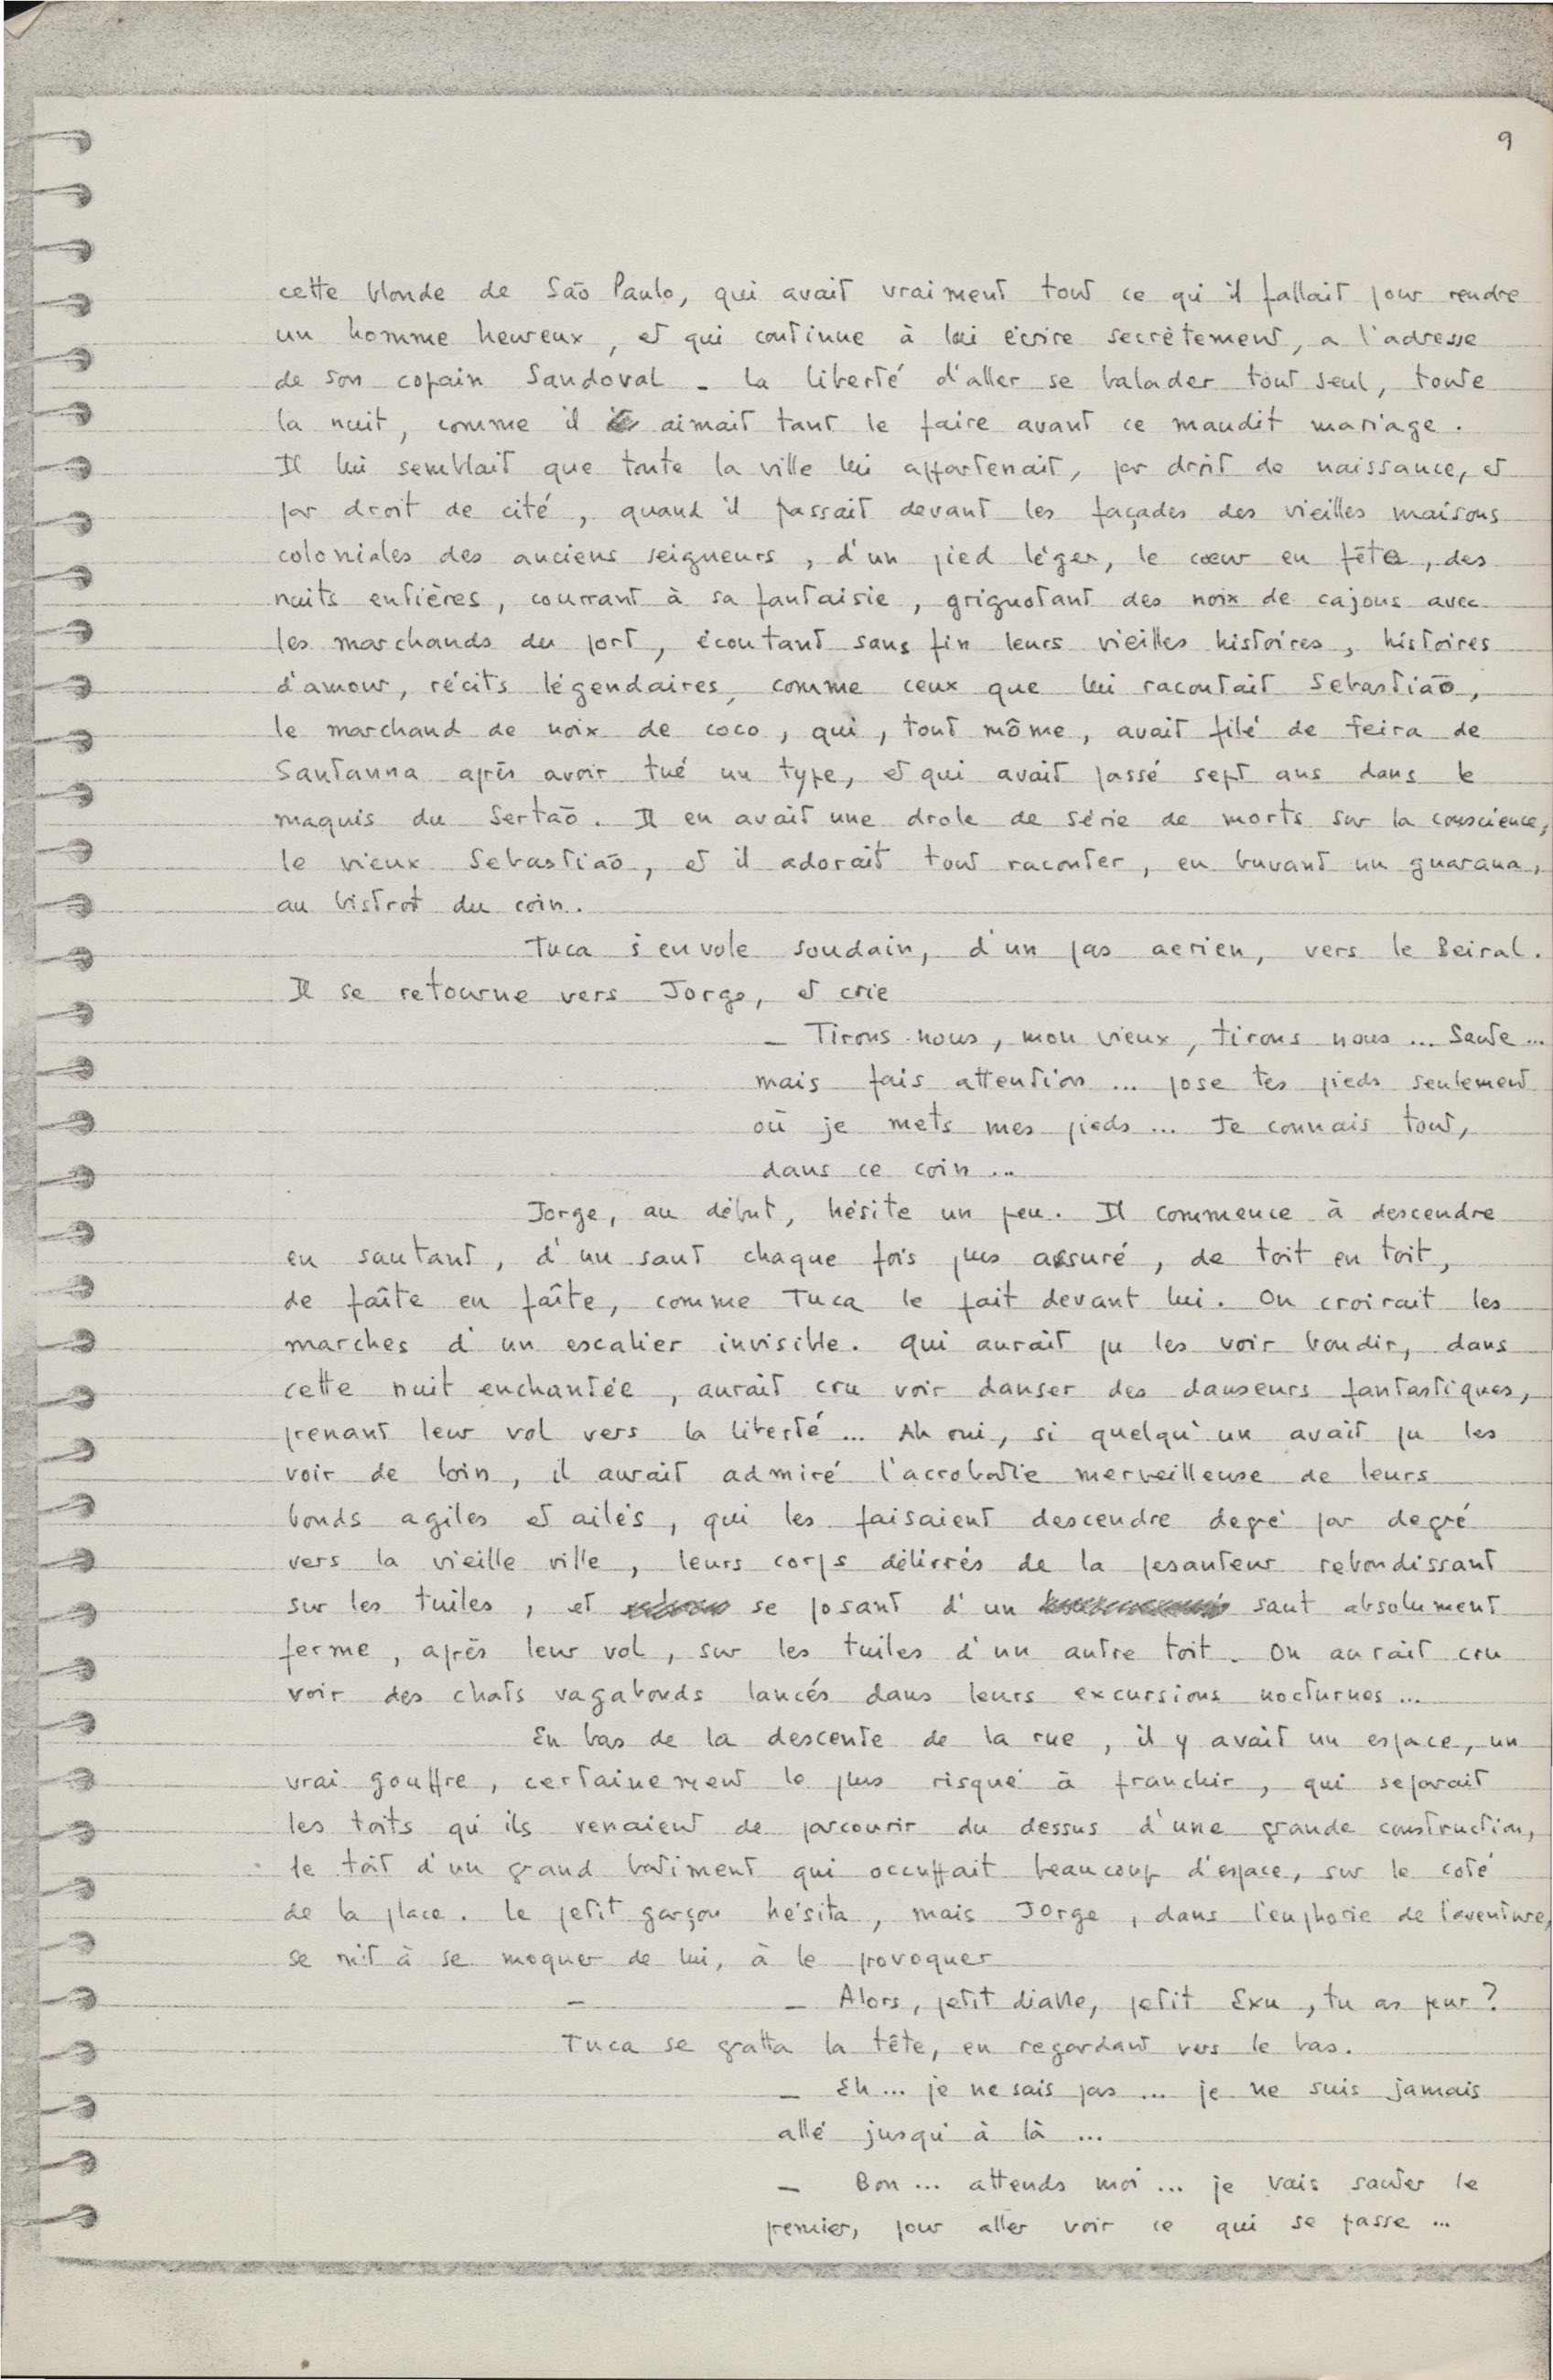 9
cette blonde de São Paulo, qui avait vraiment tout ce qu'il fallait pour rendre
un homme heureux, et qui continue à lui écrire secrètement, a l'adresse
de son copain Sandoval - la liberté d'aller se balader tout seul, toute
la nuit, comme il aimait tant le faire avant ce maudit mariage.
Il lui semblait que toute la ville lui appartenait, par droit de naissance, et
par droit de cité, quand il passait devant les façades des vieilles maisons
coloniales des anciens seigneurs, d'un pied léger, le cœur en fête, des
nuits entières, courrant à sa fantaisie, grignotant des noix de cajous avec
les marchands du port, écoutant sans fin leurs vieilles histoires, histoires
d'amour, récits légendaires, comme ceux que lui racontait Sebastiaõ,
le marchand de noix de coco, qui, tout môme, avait filé de Feira de
Santanna après avoir tué un type, et qui avait passé sept ans dans le
maquis du Sertaõ. Il en avait une drole de série de morts sur la conscience,
le vieux Sebastiaõ, et il adorait tout raconter, en buvant un guarana,
au bistrot du coin.
Tuca s'envole soudain, d'un pas aerien, vers le Beiral.
Il se retourne vers Jorge, et crie
- Tirons nous, mon vieux, tirons nous ... Saute ...
mais fais attention ... pose tes pieds seulement
où je mets mes pieds ... Je connais tout,
dans ce coin ...
Jorge, au début, hésite un peu. Il commence à descendre
en sautant, d'un saut chaque fois plus assuré, de toit en toit,
de faîte en faîte, comme Tuca le fait devant lui. On croirait les
marches d'un escalier invisible. Qui aurait pu les voir bondir, dans
cette nuit enchantée, aurait cru voir danser des danseurs fantastiques,
prenant leur vol vers la liberté ... Ah oui, si quelqu'un avait pu les
voir de loin, il aurait admiré l'acrobatie merveilleuse de leurs
bonds agiles et ailés, qui les faisaient descendre degré par degré
vers la vieille ville, leurs corps délivrés de la pesanteur rebondissant
sur les tuiles, et se posant d'un saut absolument
ferme, après leur vol, sur les tuiles d'un autre toit. On aurait cru
voir des chats vagabonds lancés dans leurs excursions nocturnes ...
En bas de la descente de la rue, il y avait un espace, un
vrai gouffre, certainement le plus risqué à franchir, qui separait
les toits qu'ils venaient de parcourir du dessus d'une grande construction,
le toit d'un grand batiment qui occuppait beaucoup d'espace, sur le coté
de la place. Le petit garçon hésita, mais Jorge, dans l'euphorie de l'aventure,
se mit à se moquer de lui, à le provoquer
- - Alors, petit diable, petit Exu, tu as peur ?
Tuca se gratta la tête, en regardant vers le bas.
- Eh ... je ne sais pas ... je ne suis jamais
allé jusqu'à là ...
- Bon ... attends moi ... je vais sauter le
premier, pour aller voir ce qui se passe ...